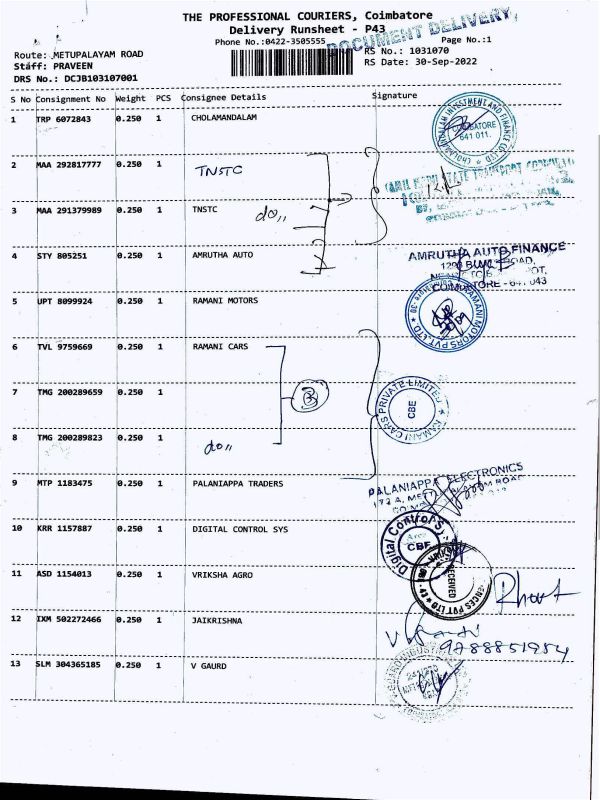 THE PROFESSIONAL COURIERS, Coimbatore
Delivery Runsheet - P43
DOCUMENT DELIVERY
Phone No.:0422-3505555
Page No.:1
Route: METUPALAYAM ROAD
RS No.: 1031070
Staff: PRAVEEN
RS Date: 30-Sep-2022
DRS No.: DCJB103107001
S No Consignment No Weight PCS Consignee Details Signature
1 TRP 6072843 0.250 1 CHOLAMANDALAM
CHOLAMANDALAM INVESTMENT AND FINANCE CO LTD
641 011.
2 MAA 292817777 0.250 1 TNSTC
TAMIL NADU STATE TRANSPORT
3 MAA 291379989 0.250 1 TNSTC do,,
4 STY 805251 0.250 1 AMRUTHA AUTO
AMRUTHA AUTO FINANCE
COIMBATORE - 641 043
5 UPT 8099924 0.250 1 RAMANI MOTORS
RAMANI MOTORS PVT. LTD
6 TVL 9759669 0.250 1 RAMANI CARS
7 TMG 200289659 0.250 1
3
RAMANI CARS PRIVATE LIMITED
CBE
8 TMG 200289823 0.250 1 do,,
9 MTP 1183475 0.250 1 PALANIAPPA TRADERS
PALANIAPPA ELECTRONICS
10 KRR 1157887 0.250 1 DIGITAL CONTROL SYS
Digital Control S
CBE
11 ASD 1154013 0.250 1 VRIKSHA AGRO
RECEIVED
12 IXM 502272466 0.250 1 JAIKRISHNA
13 SLM 304365185 0.250 1 V GAURD